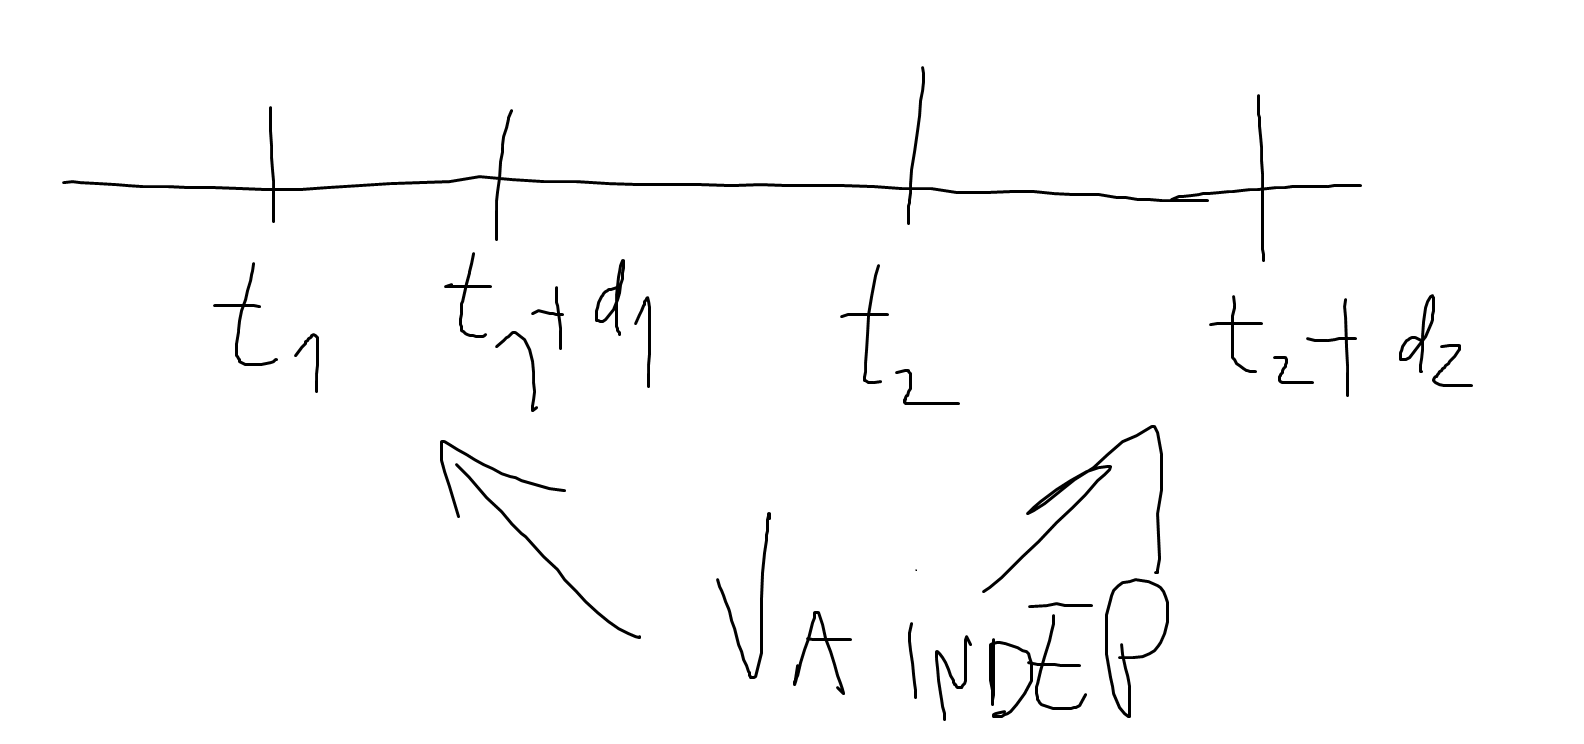 t1 t1+d1 t2 t2+d2
VA INDEP